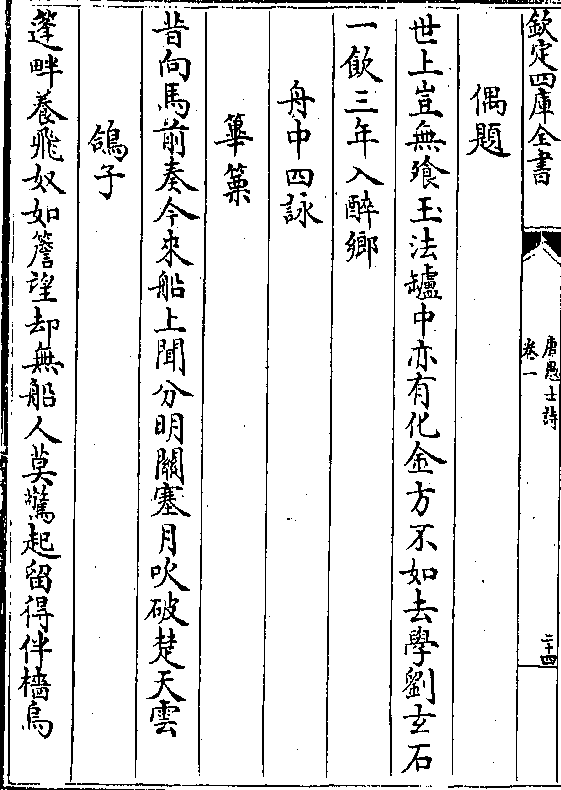 欽定四庫全書
唐愚士詩
卷一
二十四
偶題
世上豈無飱玉法罏中亦有化金方不如去學劉玄石
一飲三年入醉鄉
舟中四詠
篳篥
昔向馬前奏今來船上聞分明關塞月吹破楚天雲
鴿子
蓬畔養飛奴如簷望却無船人莫驚起留得伴檣烏